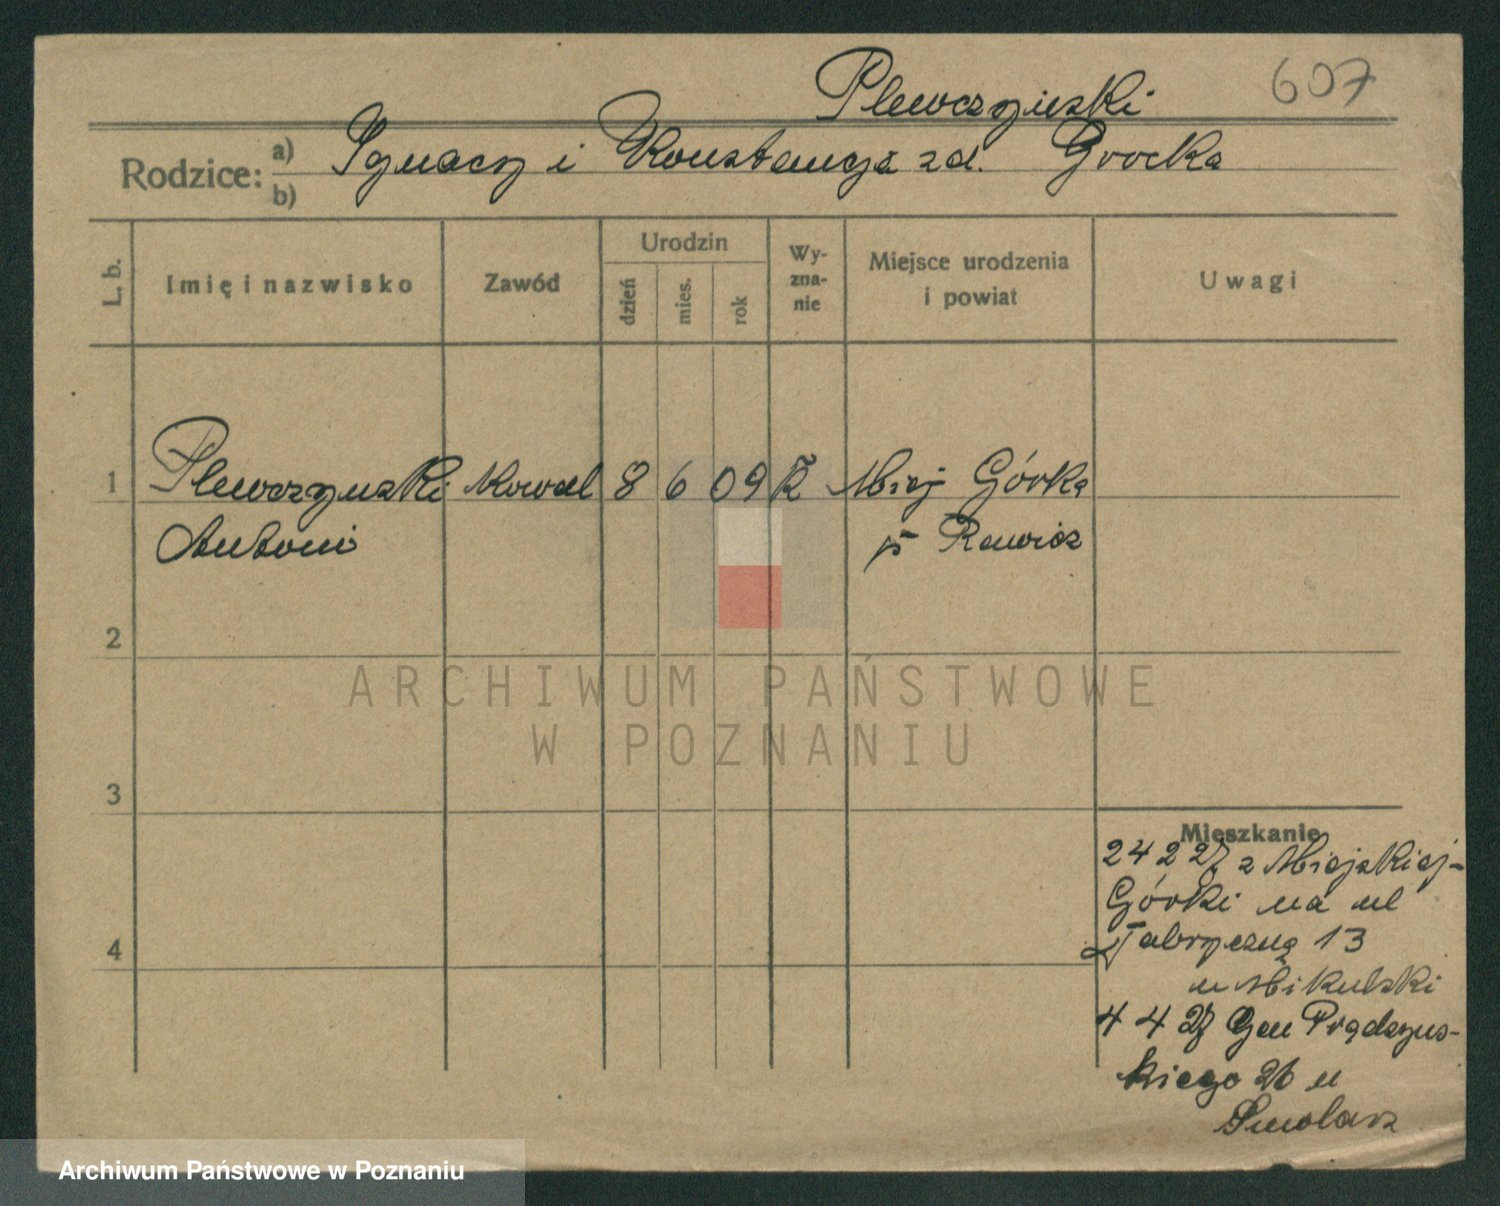 607
Plewczyński
Rodzice: a) Ignacy i Konstancja zd. Grocka
b)
L. b.
Imię i nazwisko
Zawód
Urodzin
dzień
mies.
rok
Wy-
zna-
nie
Miejsce urodzenia
i powiat
Uwagi
1 Plewczyński Kowal 8 6 09 K Miej Górka
Antoni p Rawicz
2
3
4
Mieszkanie
24 2 27 z Miejskiej-
Górki na ul
Fabryczną 13
u Mikulski
4 4 27 Gen Prądzyns-
kiego 26 u
Smolarz
ARCHIWUM PAŃSTWOWE
W POZNANIU
Archiwum Państwowe w Poznaniu